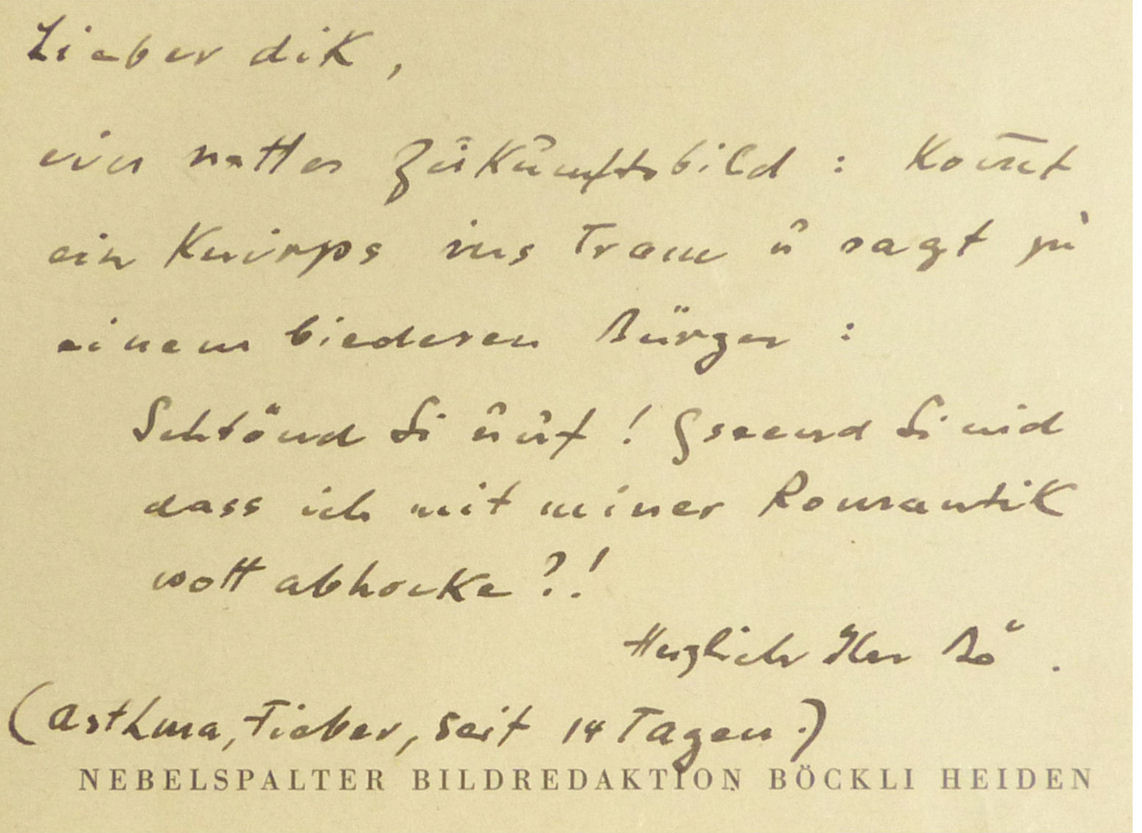 Lieber dik,
ein nettes Zukunftsbild: Kom̅t
ein Knirps ins Tram u sagt zu
einem biederen Bürger:
Schtönd Si uuf! Gseend Si nid
dass ich mit miner Romantik
wott abhocke?!
Herzlich Ihr Bö.
(Asthma, Fieber, seit 14 Tagen.)
NEBELSPALTER BILDREDAKTION BÖCKLI HEIDEN